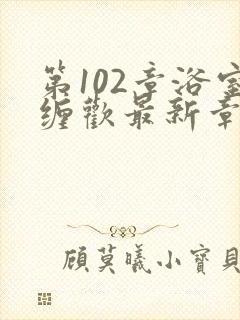 第102章浴室
缠欢最新章
顾莫曦小宝貝